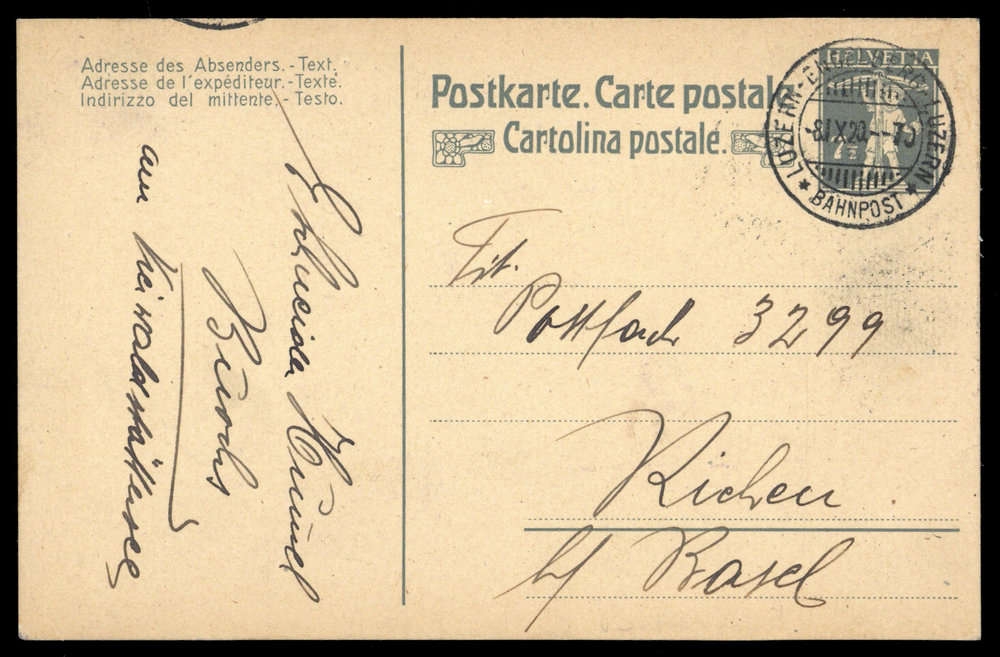 Adresse des Absenders.-Text.
Adresse de l'expéditeur.-Texte.
Indirizzo del mittente.-Testo.
Postkarte. Carte postale
Cartolina postale.
HELVETIA
7½
LUZERN LUZERN
-8.IX.20.
★ BAHNPOST ★
Tit.
Postfach 3299
Richen
b/ Basel
Buochs
am Vierwaldstättersee